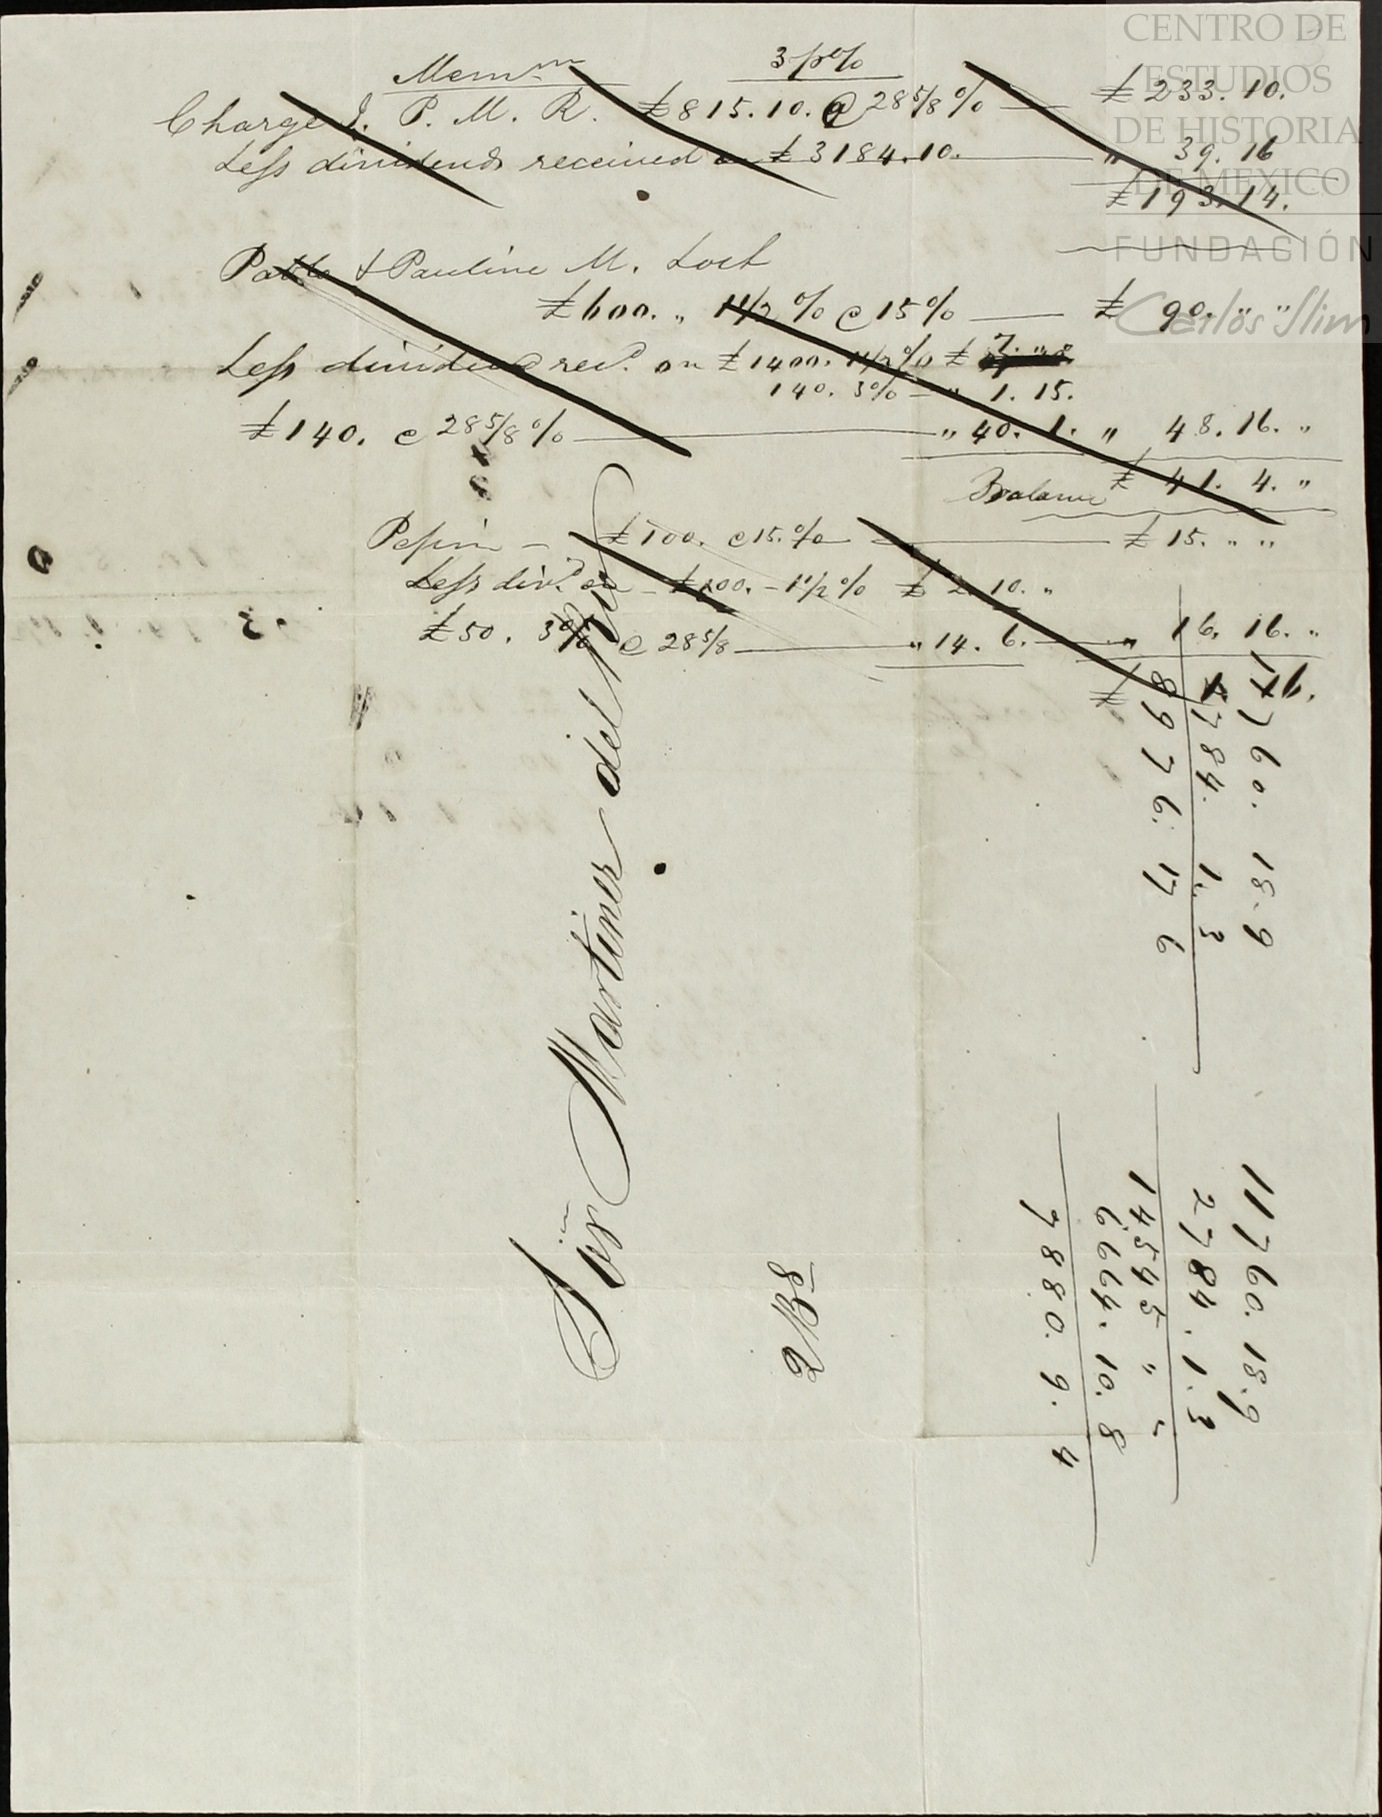 Mem^m 3 p%
Charge J. P. M. R. £815.10. @ 28 5/8 % £233.10.
Less dividends received on £3184.10. " 39.16
£193.14.
Pablo & Pauline M.
£600. " 1 1/2 % @ 15 % £ 90. " "
Less dividend rec^d. on £1400. 1 1/2 % £ 7. " "
140. 3% " 1. 15.
£140. @ 28 5/8 % " 40. 1. " 48. 16. "
Balance £ 41. 4. "
Pepin £100. @ 15. % £ 15. " "
Less div^d on £500. 1 1/2 % £ 2. 10. "
£50. 3% @ 28 5/8 " 14. 6. " 16. 16. "
£ 1. 16.
Sōr Martinez del Rio
11760. 18. 9
2784. 1. 3
8976. 17 6
11760. 18. 9
2784. 1. 3
14545 " "
6664. 10. 8
7880. 9. 4
CENTRO DE
ESTUDIOS
DE HISTORIA
DE MÉXICO
FUNDACIÓN
Carlos Slim